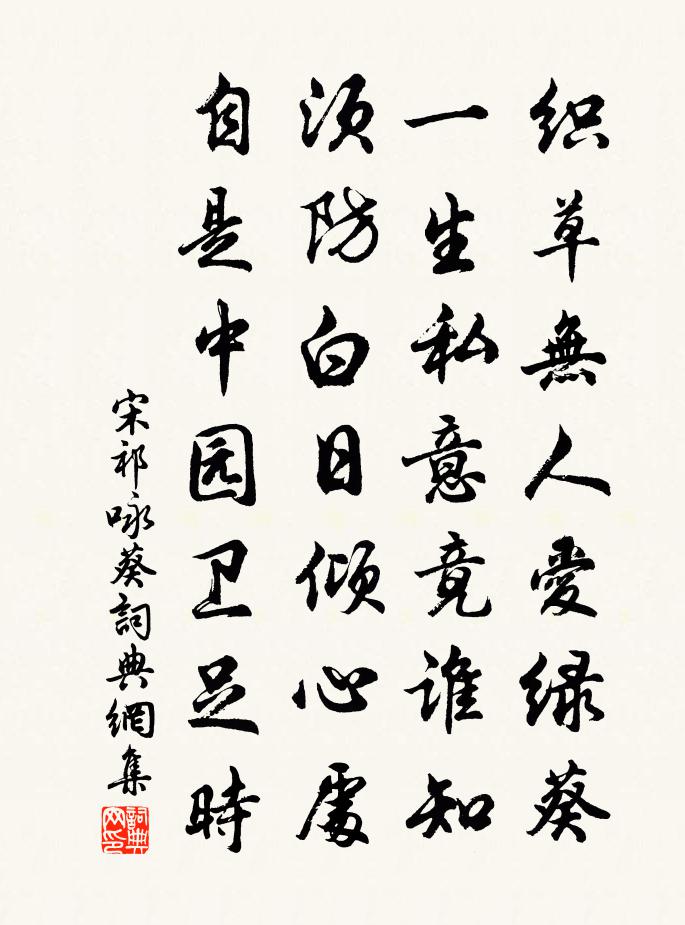 织草無人愛緑葵
一生私意竟谁知
须防白日倾心處
自是中园卫足時
宋祁咏葵詞典網集
詞典网印